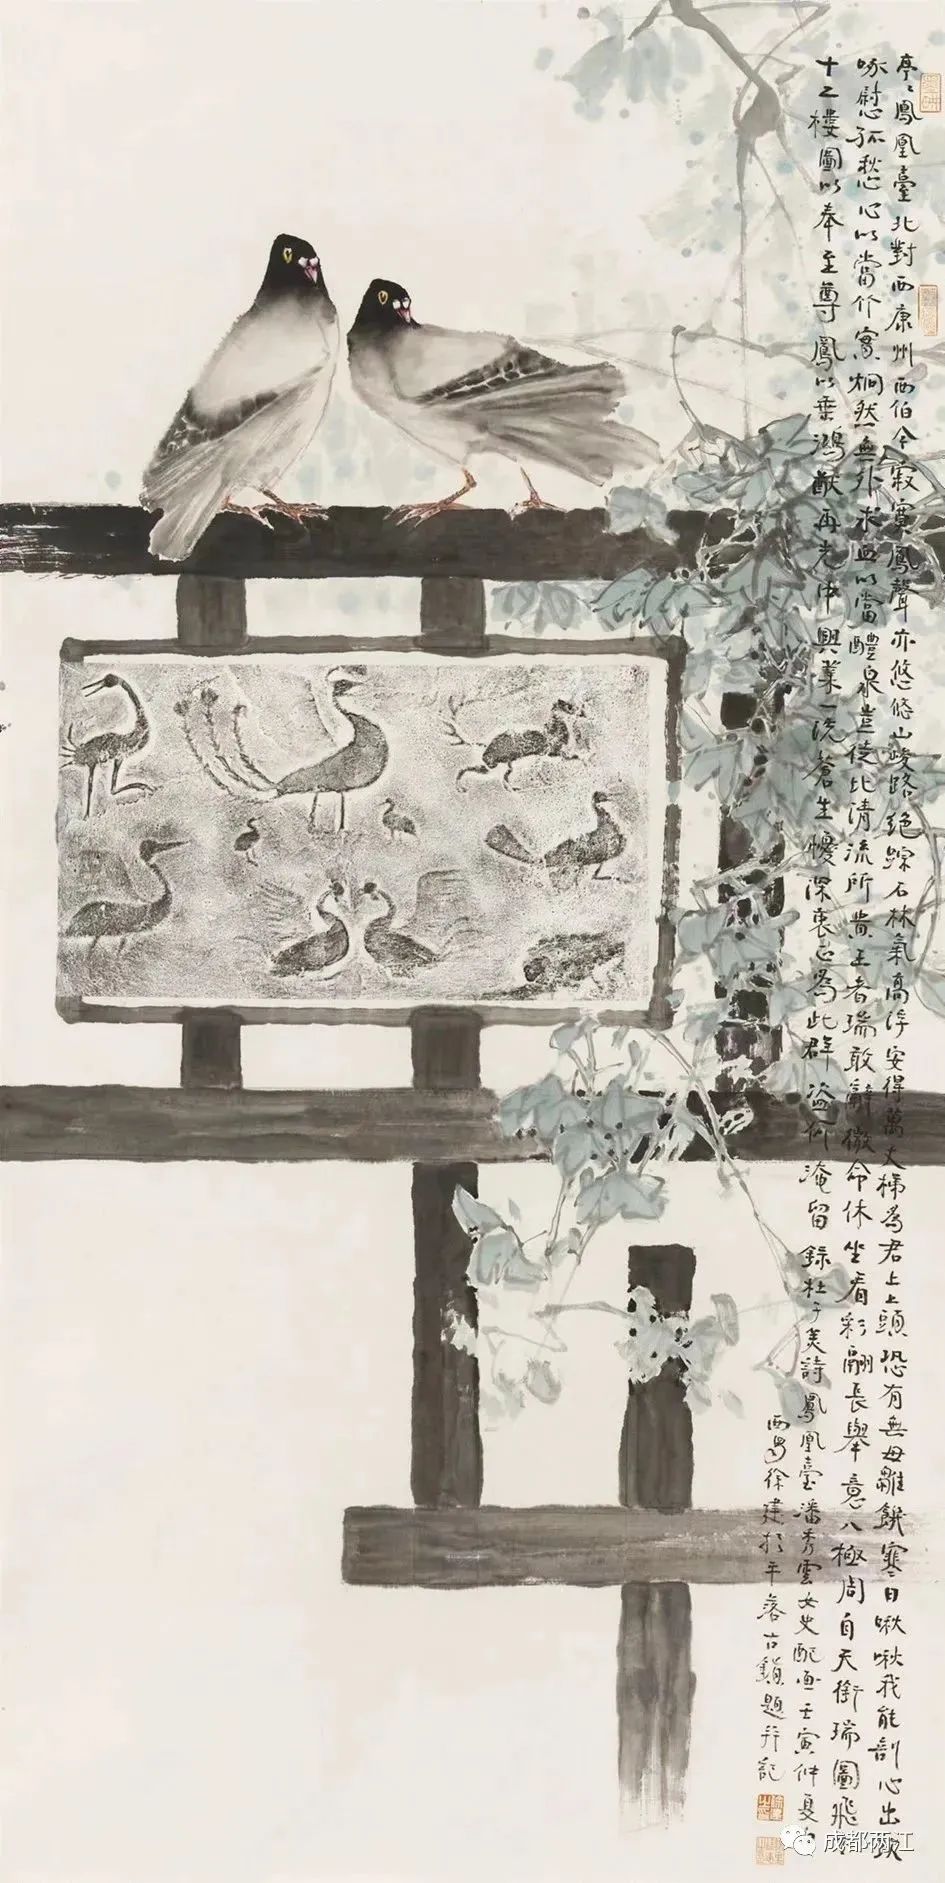 亭〻鳳凰臺北對西康州西伯今寂寞鳳聲亦悠悠山峻路絕蹤石林氣高浮安得萬丈梯為君上上頭恐有無母雛饑寒日啾啾我能剖心出飲
啄慰孤愁心以當竹實炯然無外求血以當醴泉豈徒比清流所貴王者瑞敢辭微命休坐看彩翮長舉意八極周自天銜瑞圖飛下
十二樓圖以奉至尊鳳以垂鴻猷再光中興業一洗蒼生懮深衷正為此群盜何淹留 錄杜子美詩鳳凰臺潘秀雲女史配畫壬寅仲夏
西徐建於平落古鎮題并記
成都两江